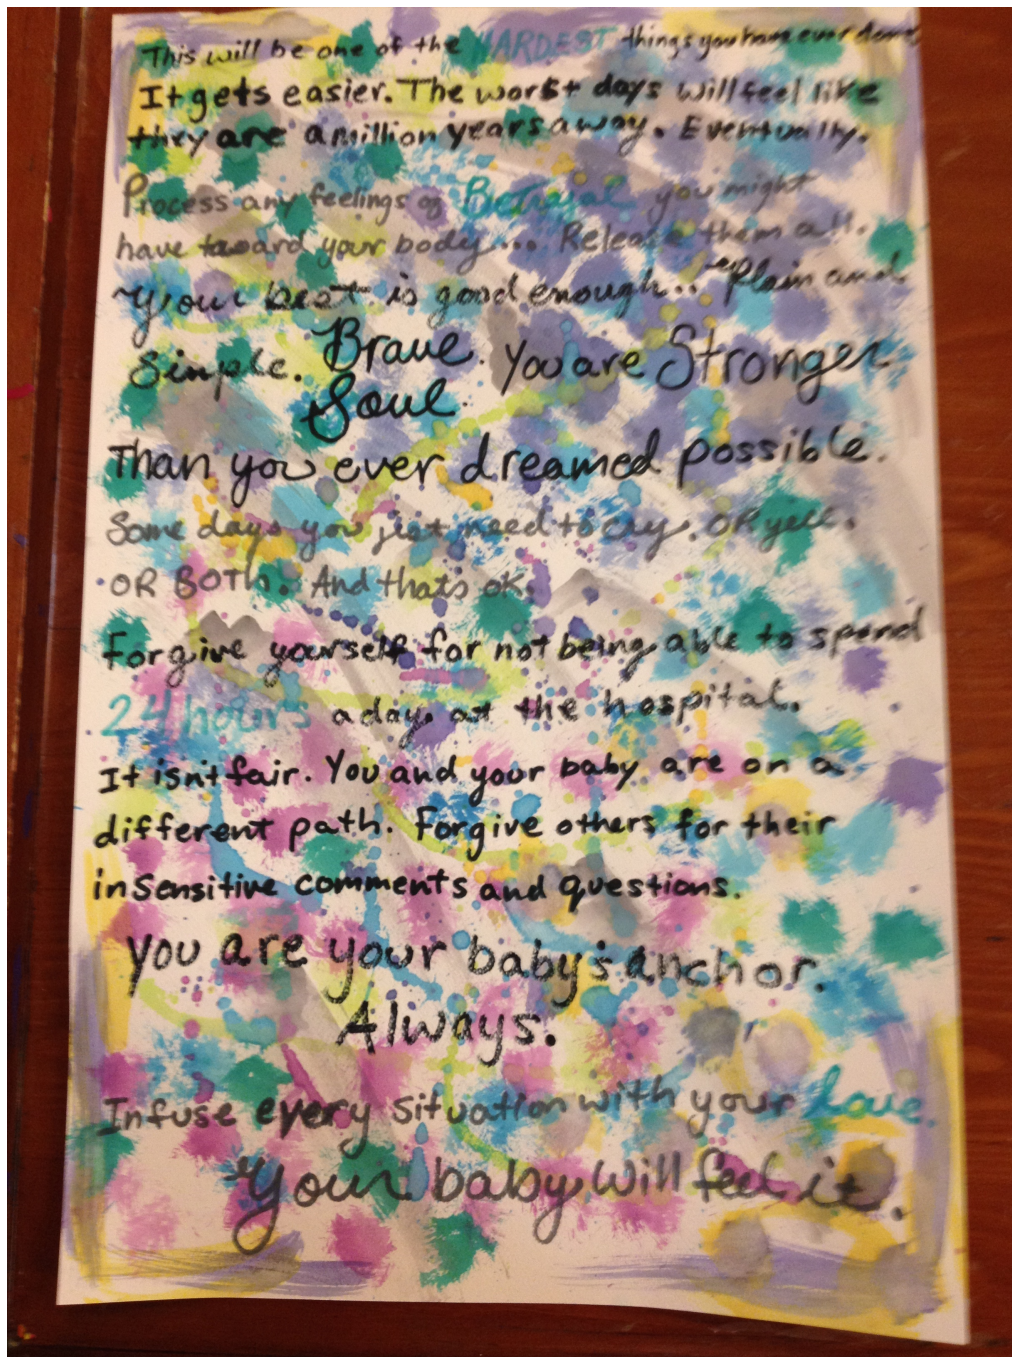 This will be one of the HARDEST things you have ever done.
It gets easier. The worst days will feel like
they are a million years away. Eventually.
Process any feelings of Betrayal you might
have toward your body... Release them all.
Your best is good enough.. Plain and
Simple. Brave Soul. You are Stronger
Than you ever dreamed possible.
Some days you just need to cry. OR yell.
OR BOTH. And thats ok.
Forgive yourself for not being able to spend
24 hours a day at the hospital.
It isn't fair. You and your baby are on a
different path. Forgive others for their
insensitive comments and questions.
You are your baby's anchor.
Always.
Infuse every situation with your Love.
Your baby will feel it.